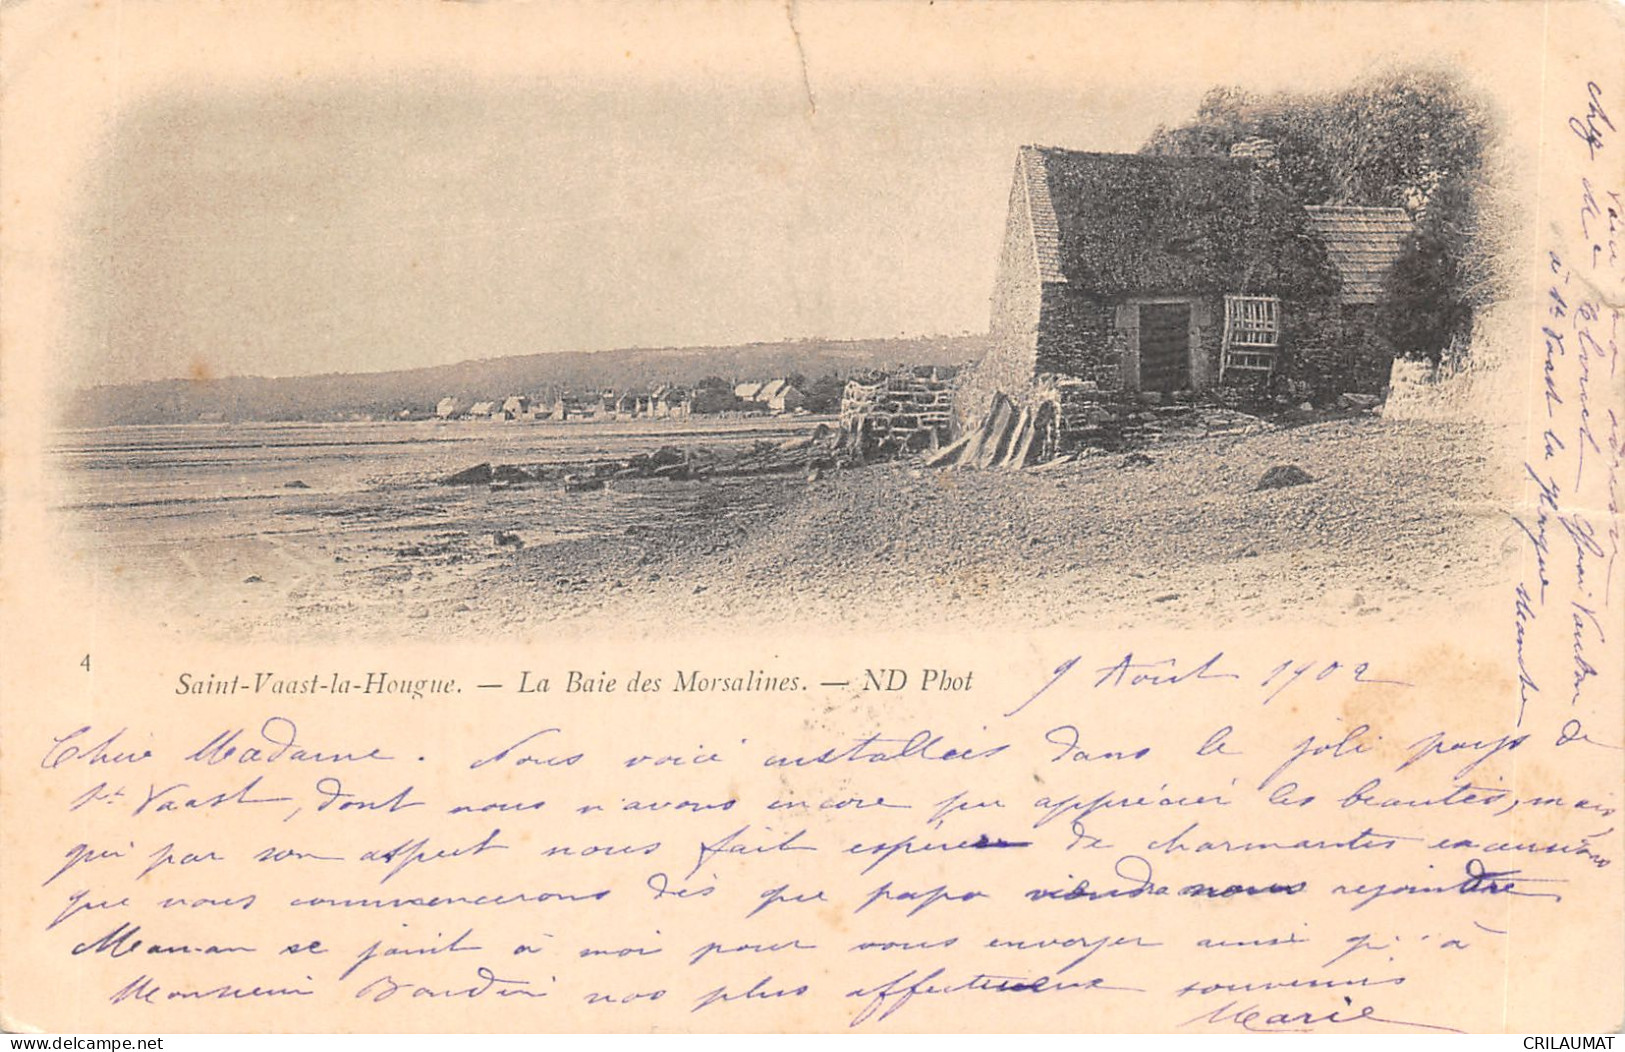 4
Saint-Vaast-la-Hougue. — La Baie des Morsalines. — ND Phot
9 Août 1902
Chère Madame. Nous voici installées dans le joli pays de
St Vaast, dont nous n'avons encore pu apprécier les beautés, mais,
qui par son aspect nous fait espérer de charmantes excursions
que nous commencerons dès que papa viendra nous rejoindre
Maman se joint à moi pour vous envoyer ainsi qu'à
Monsieur Baudin nos plus affectueux souvenirs
Marie
Voici mon adresse
chez Me Clouet Quai Vauban
à St Vaast la Hougue Manche
CRILAUMAT